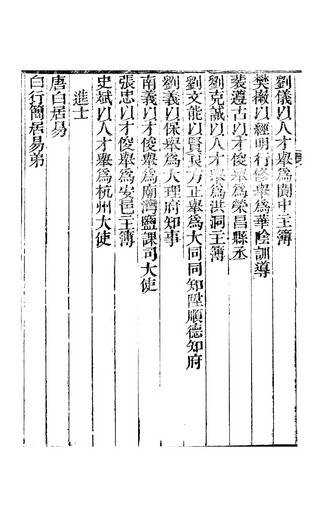 劉儀以人才舉爲閬中主簿
樊檄以經明行修舉爲華陰訓導
裴遵古以才俊舉爲榮昌縣丞
劉克誠以人才舉爲洪洞主簿
劉文能以賢良方正舉爲大同同知陞順德知府
劉義以保舉爲大理府知事
南義以才俊舉爲廟灣鹽課司大使
張忠以才俊舉爲安邑主簿
史斌以人才舉爲杭州大使
進士
唐白居易
白行簡居易弟